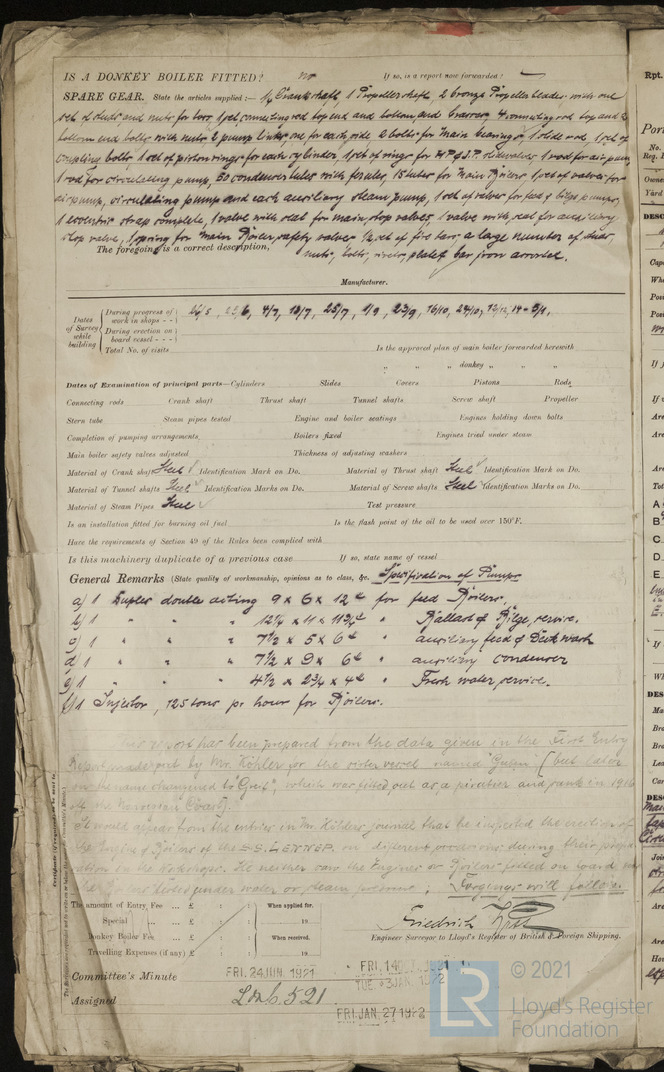 IS A DONKEY BOILER FITTED? no If so, is a report now forwarded? —
SPARE GEAR. State the articles supplied:— ½ Crankshaft, 1 Propellershaft 2 bronze Propeller blades with one
set of studs and nuts for boss, 1 set connecting rod top end and bottom end brasses, 4 connecting rod top and 2
bottom end bolts with nuts 2 pump links, one for each side 2 bolts for main bearing, 1 slide rod, 1 set of
coupling bolts 1 set of piston rings for each cylinder, 1 set of rings for H.P. & I.P. slidevalves 1 rod for air pump
1 rod for circulating pump, 50 condenser tubes with ferrules, 15 tubes for Main Boilers 1 set of valves for
airpump, circulating pump and each auxiliary steam pump, 1 set of valves for feed & bilge pumps,
1 eccentric strap complete, 1 valve with seat for main stop valves 1 valve with seat for auxiliary
stop valve, 1 spring for Main Boiler safety valves ½ set of fire bars, a large number of studs,
The foregoing is a correct description, nuts, bolts, rivets, plates & bar iron assorted.
Manufacturer.
Dates of Survey while building
During progress of work in shops - - 26/5, 6, 4/7, 18/7, 25/7, 1/9, 23/9, 16/10, 24/10, 12/12, 14 - 5/1,
During erection on board vessel - - -
Total No. of visits Is the approved plan of main boiler forwarded herewith
" " " donkey " " "
Dates of Examination of principal parts—Cylinders Slides Covers Pistons Rods
Connecting rods Crank shaft Thrust shaft Tunnel shafts Screw shaft Propeller
Stern tube Steam pipes tested Engine and boiler seatings Engines holding down bolts
Completion of pumping arrangements Boilers fixed Engines tried under steam
Main boiler safety valves adjusted Thickness of adjusting washers
Material of Crank shaft Steel Identification Mark on Do. Material of Thrust shaft Steel Identification Mark on Do.
Material of Tunnel shafts Steel Identification Marks on Do. Material of Screw shafts Steel Identification Marks on Do.
Material of Steam Pipes Steel Test pressure
Is an installation fitted for burning oil fuel Is the flash point of the oil to be used over 150°F.
Have the requirements of Section 49 of the Rules been complied with
Is this machinery duplicate of a previous case If so, state name of vessel
General Remarks (State quality of workmanship, opinions as to class, &c. Specification of Pumps
a) 1 Duplex double acting 9 x 6 x 12" for feed Boilers.
b) 1 " " " 12¼ x 11 x 11¾" " Ballast & Bilge, service.
c) 1 " " " 7½ x 5 x 6" " auxiliary feed & Deck wash
d) 1 " " " 7½ x 9 x 6" " auxiliary condenser
e) 1 " " " 4½ x 2¾ x 4" " Fresh water service.
f) 1 Injector, 125 tons pr hour for Boilers.
This report has been prepared from the data given in the First Entry
Report made out by Mr. Köhler for the sister vessel named (but later
on the name changed to "Greif", which was fitted out as a privateer and sank in 1916
off the Norwegian Coast).
It would appear from the entries in Mr. Köhler's journal that he inspected the erection of
the Engines & Boilers of the S.S. LENNEP on different occasions during their
in the Workshops. He neither saw the Engines or Boilers fitted on board
the Boilers tested under water or steam pressure; Forgings will follow.
The amount of Entry Fee ... £ : : When applied for,
Special ... £ : : 19
Donkey Boiler Fee ... £ : : When received,
Travelling Expenses (if any) £ : : 19
Friedrich
Engineer Surveyor to Lloyd's Register of British & Foreign Shipping.
Committee's Minute FRI. 24 JUN. 1921 FRI. 14 1921
TUE. 3 JAN. 1922
Assigned
FRI. JAN. 27 1922
LR
© 2021
Lloyd's Register
Foundation
Rpt.
Port
No.
Reg.
Owner
Yard